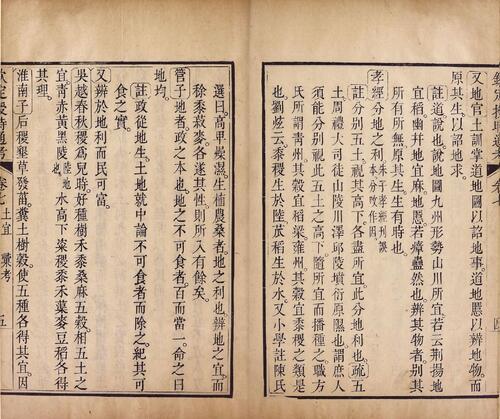 又地官土訓掌道地圖以詔地事道地慝以辨地物而
原其生以詔地求
註道說也說地圖九州形勢山川所宜若云荆揚地
宜稻幽并地宜麻地慝若瘴蠱然也辨其物者別其
所有所無原其生生有時也
孝經分地之利朱子孝經刊誤本分攺作因
註分別五土視其高下各盡所宜此分地利也疏五
土周禮大司徒山陵川澤邱陵墳衍原隰也謂庶人
須能分別視此五土之高下隨所宜而播種之職方
氏所謂靑州其穀宜稻梁雍州其穀宜黍稷之類是
也劉炫云黍稷生於陸苽稻生於水又小學註陳氏
選曰高早燥濕生植農桑者地之利也辨地之宜而
稌黍菽麥各遂其性則所入有餘矣
管子地者政之本也地之不可食者百而當一命之曰
地均
註政從地生土地就中論不可食者而除之紀其可
食之實
又辨於地利而民可富
吳越春秋稷爲兒時好種樹禾黍桑麻五穀相五土之
宜靑赤黃黑陵陸地也水高下粢稷黍禾蕖麥豆稻各得
其理
淮南子后稷墾草發菑糞土樹穀使五種各得其宜因
欽定授時通考 卷七 土宜 彚考 五